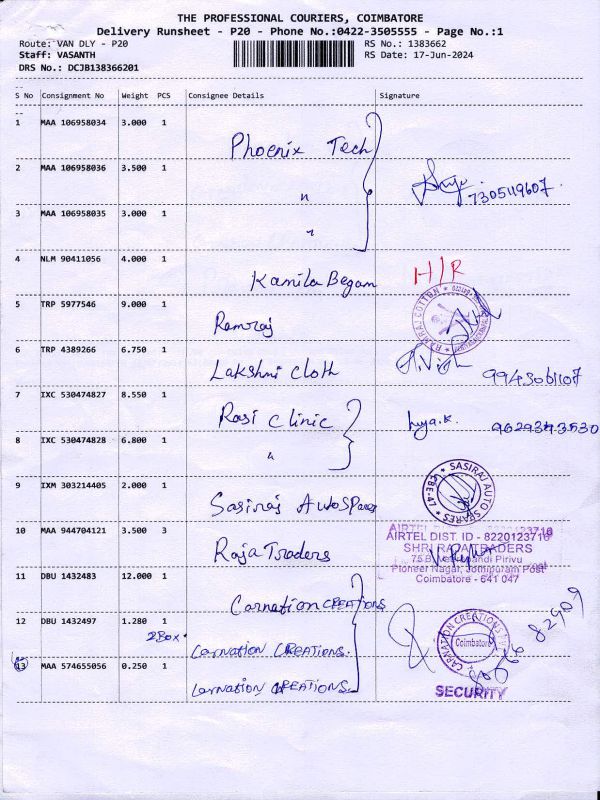 THE PROFESSIONAL COURIERS, COIMBATORE
Delivery Runsheet - P20 - Phone No.:0422-3505555 - Page No.:1
Route: VAN DLY - P20 RS No.: 1383662
Staff: VASANTH RS Date: 17-Jun-2024
DRS No.: DCJB138366201
--
S No Consignment No Weight PCS Consignee Details Signature
--
1 MAA 106958034 3.000 1 Phoenix Tech
2 MAA 106958036 3.500 1 " 7305119607
3 MAA 106958035 3.000 1 "
4 NLM 90411056 4.000 1 Kamila Begam H/R
5 TRP 5977546 9.000 1 Ramraj RAMRAJ COTTON
6 TRP 4389266 6.750 1 Lakshmi cloth 9943061107
7 IXC 530474827 8.550 1 Rasi Clinic 9629343530
8 IXC 530474828 6.800 1 "
9 IXM 303214405 2.000 1 Sasiraj AutoSpares SASIRAJ AUTO SPARES
10 MAA 944704121 3.500 3 Raja Traders
AIRTEL DIST. ID - 8220123716
SHRI RAJA TRADERS
Pirivu
Pioneer Nagar, Jothipuram Post
Coimbatore - 641 047
11 DBU 1432483 12.000 1 Carnation CREATIONS
12 DBU 1432497 1.280 1 2Box Carnation CREATIONS. CARNATION CREATIONS Coimbatore
13 MAA 574655056 0.250 1 Carnation CREATIONS.
SECURITY